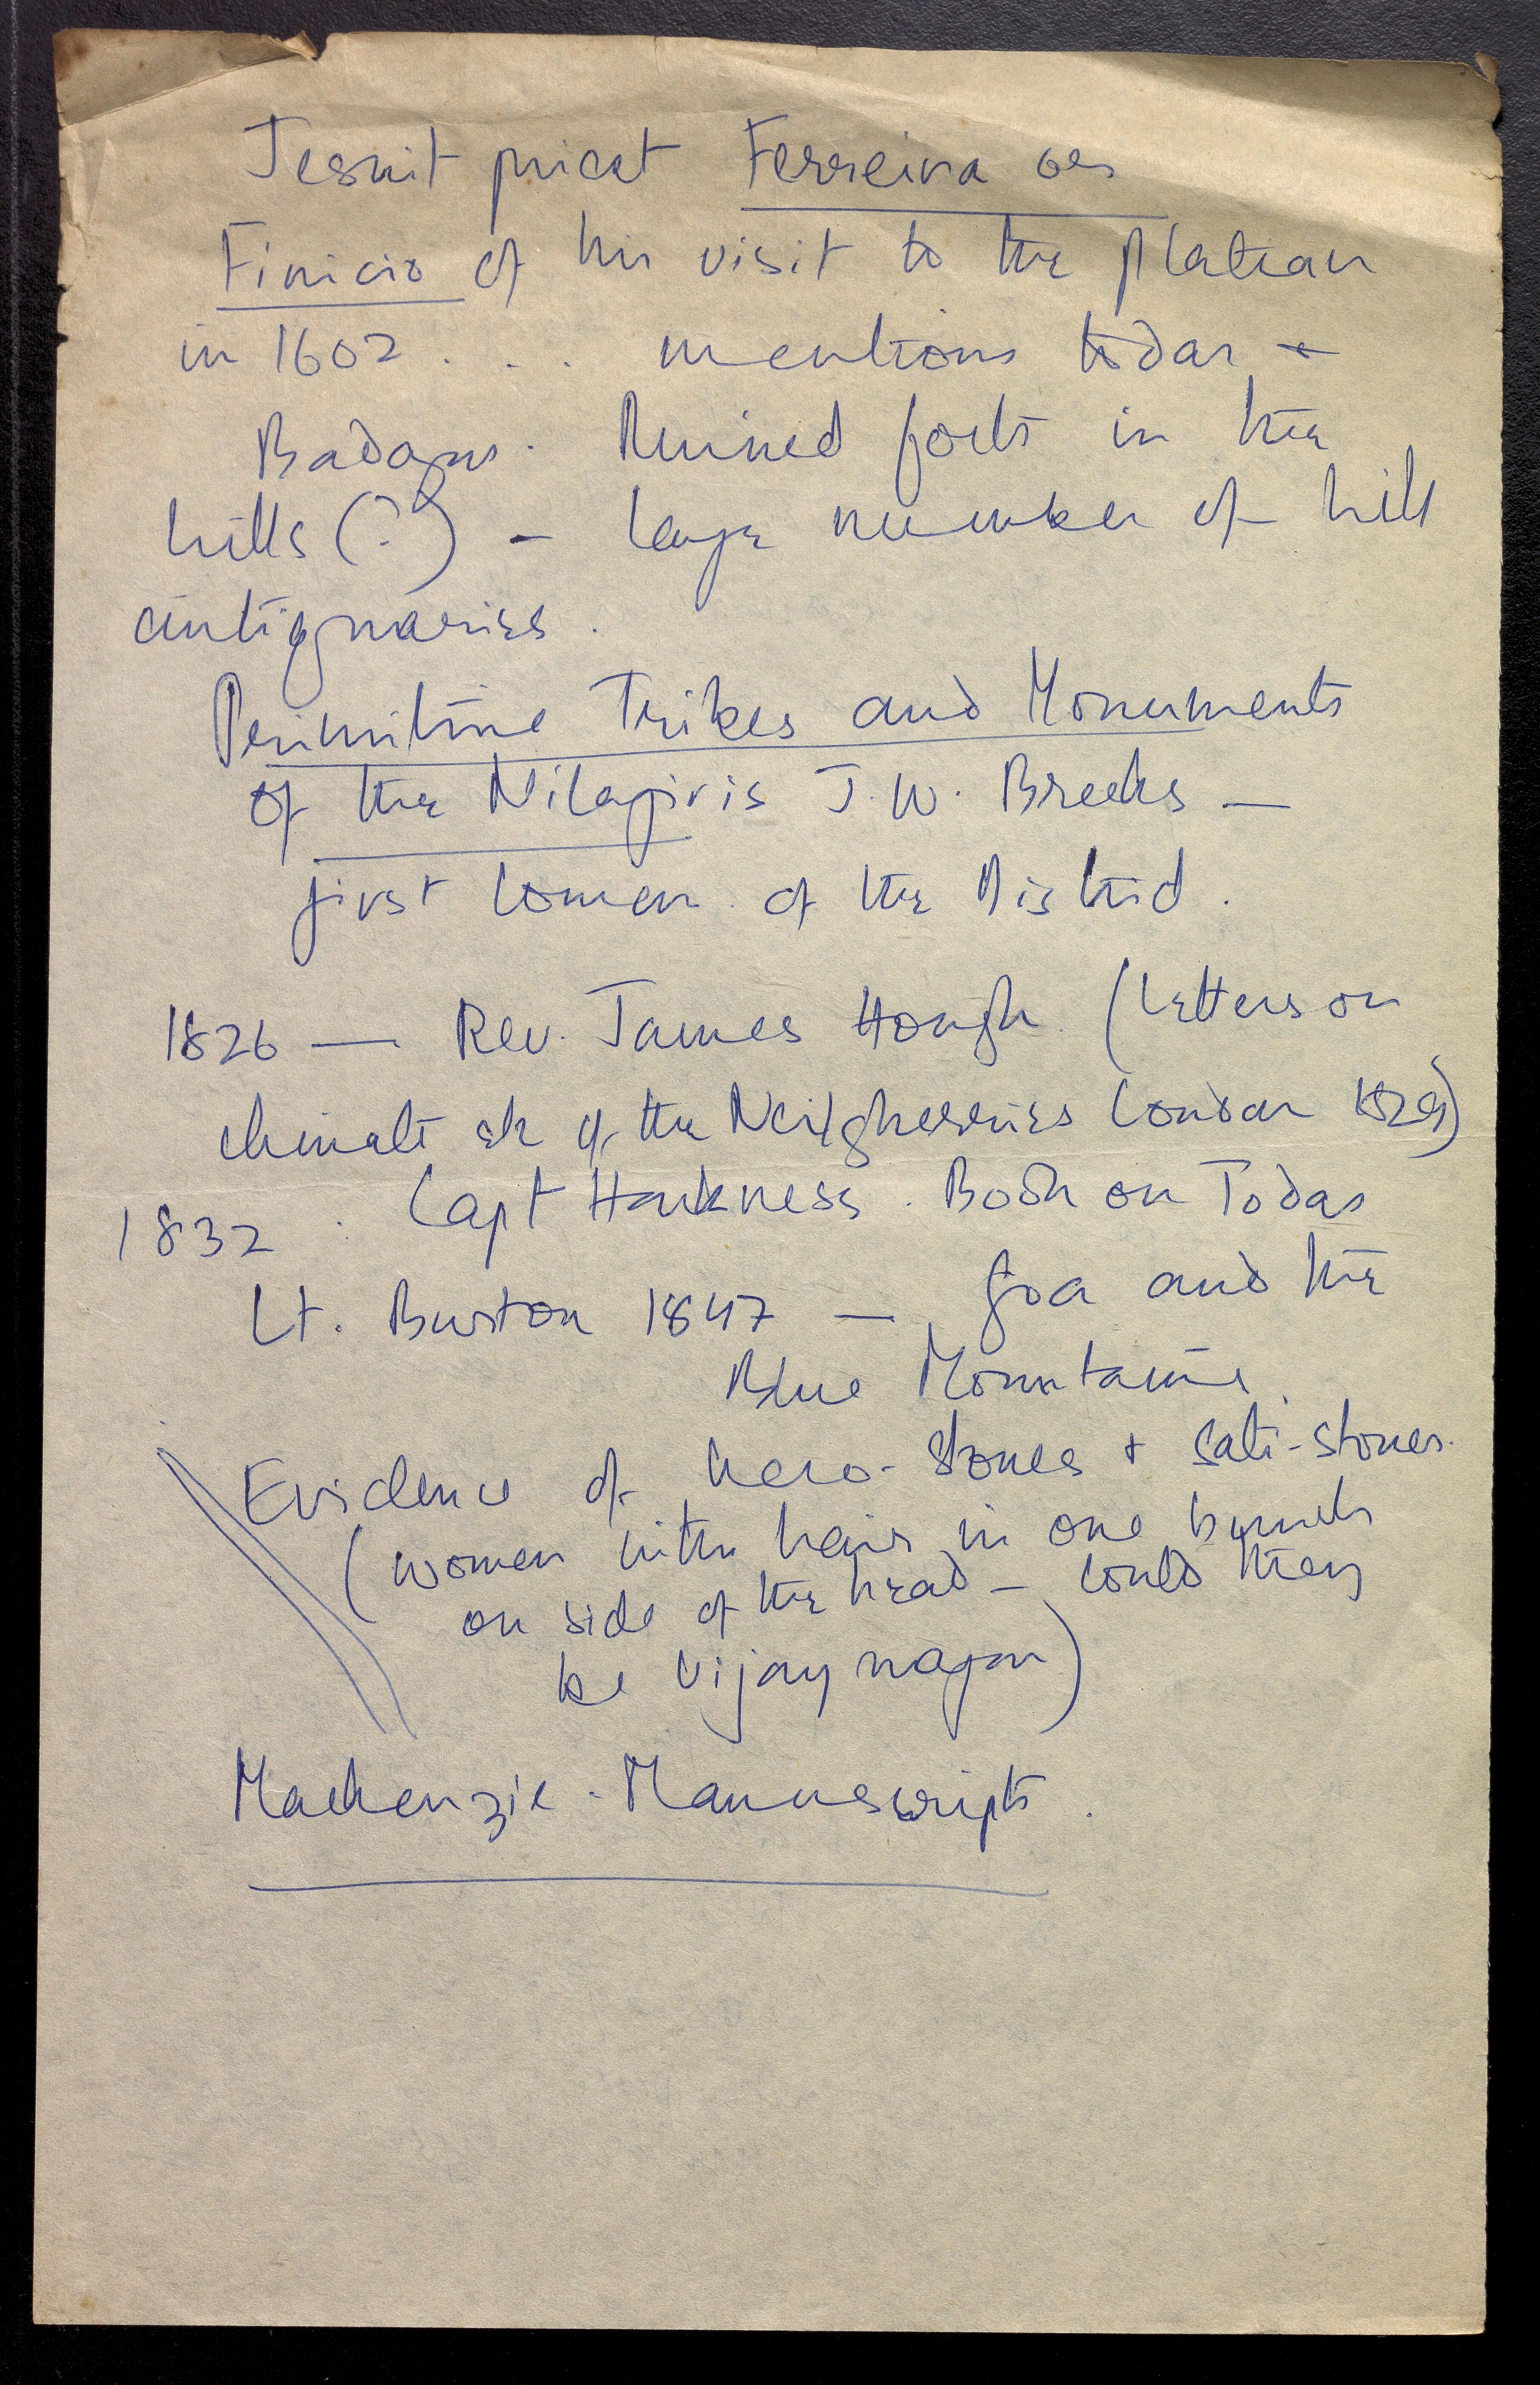 Jesuit priest Ferreira or
Finicio of his visit to the plateau
in 1602 . . . mentions todas +
Badagas. Ruined forts in the
hills (?) - large number of hill
antiquaries.
Primitive Tribes and Monuments
of the Nilagiris J. W. Breeks —
first Commr of the District.
1826 — Rev. James Hough (Letters on
climate etc of the Neilgherries London 1829)
1832 . Capt Harkness. Book on Todas
Lt. Burton 1847 — Goa and the
Blue Mountains.
Evidence of hero-stones + Sati-stones.
(women with hair in one bunch
on side of the head — could they
be Vijaynagar)
Mackenzie - Manuscripts.